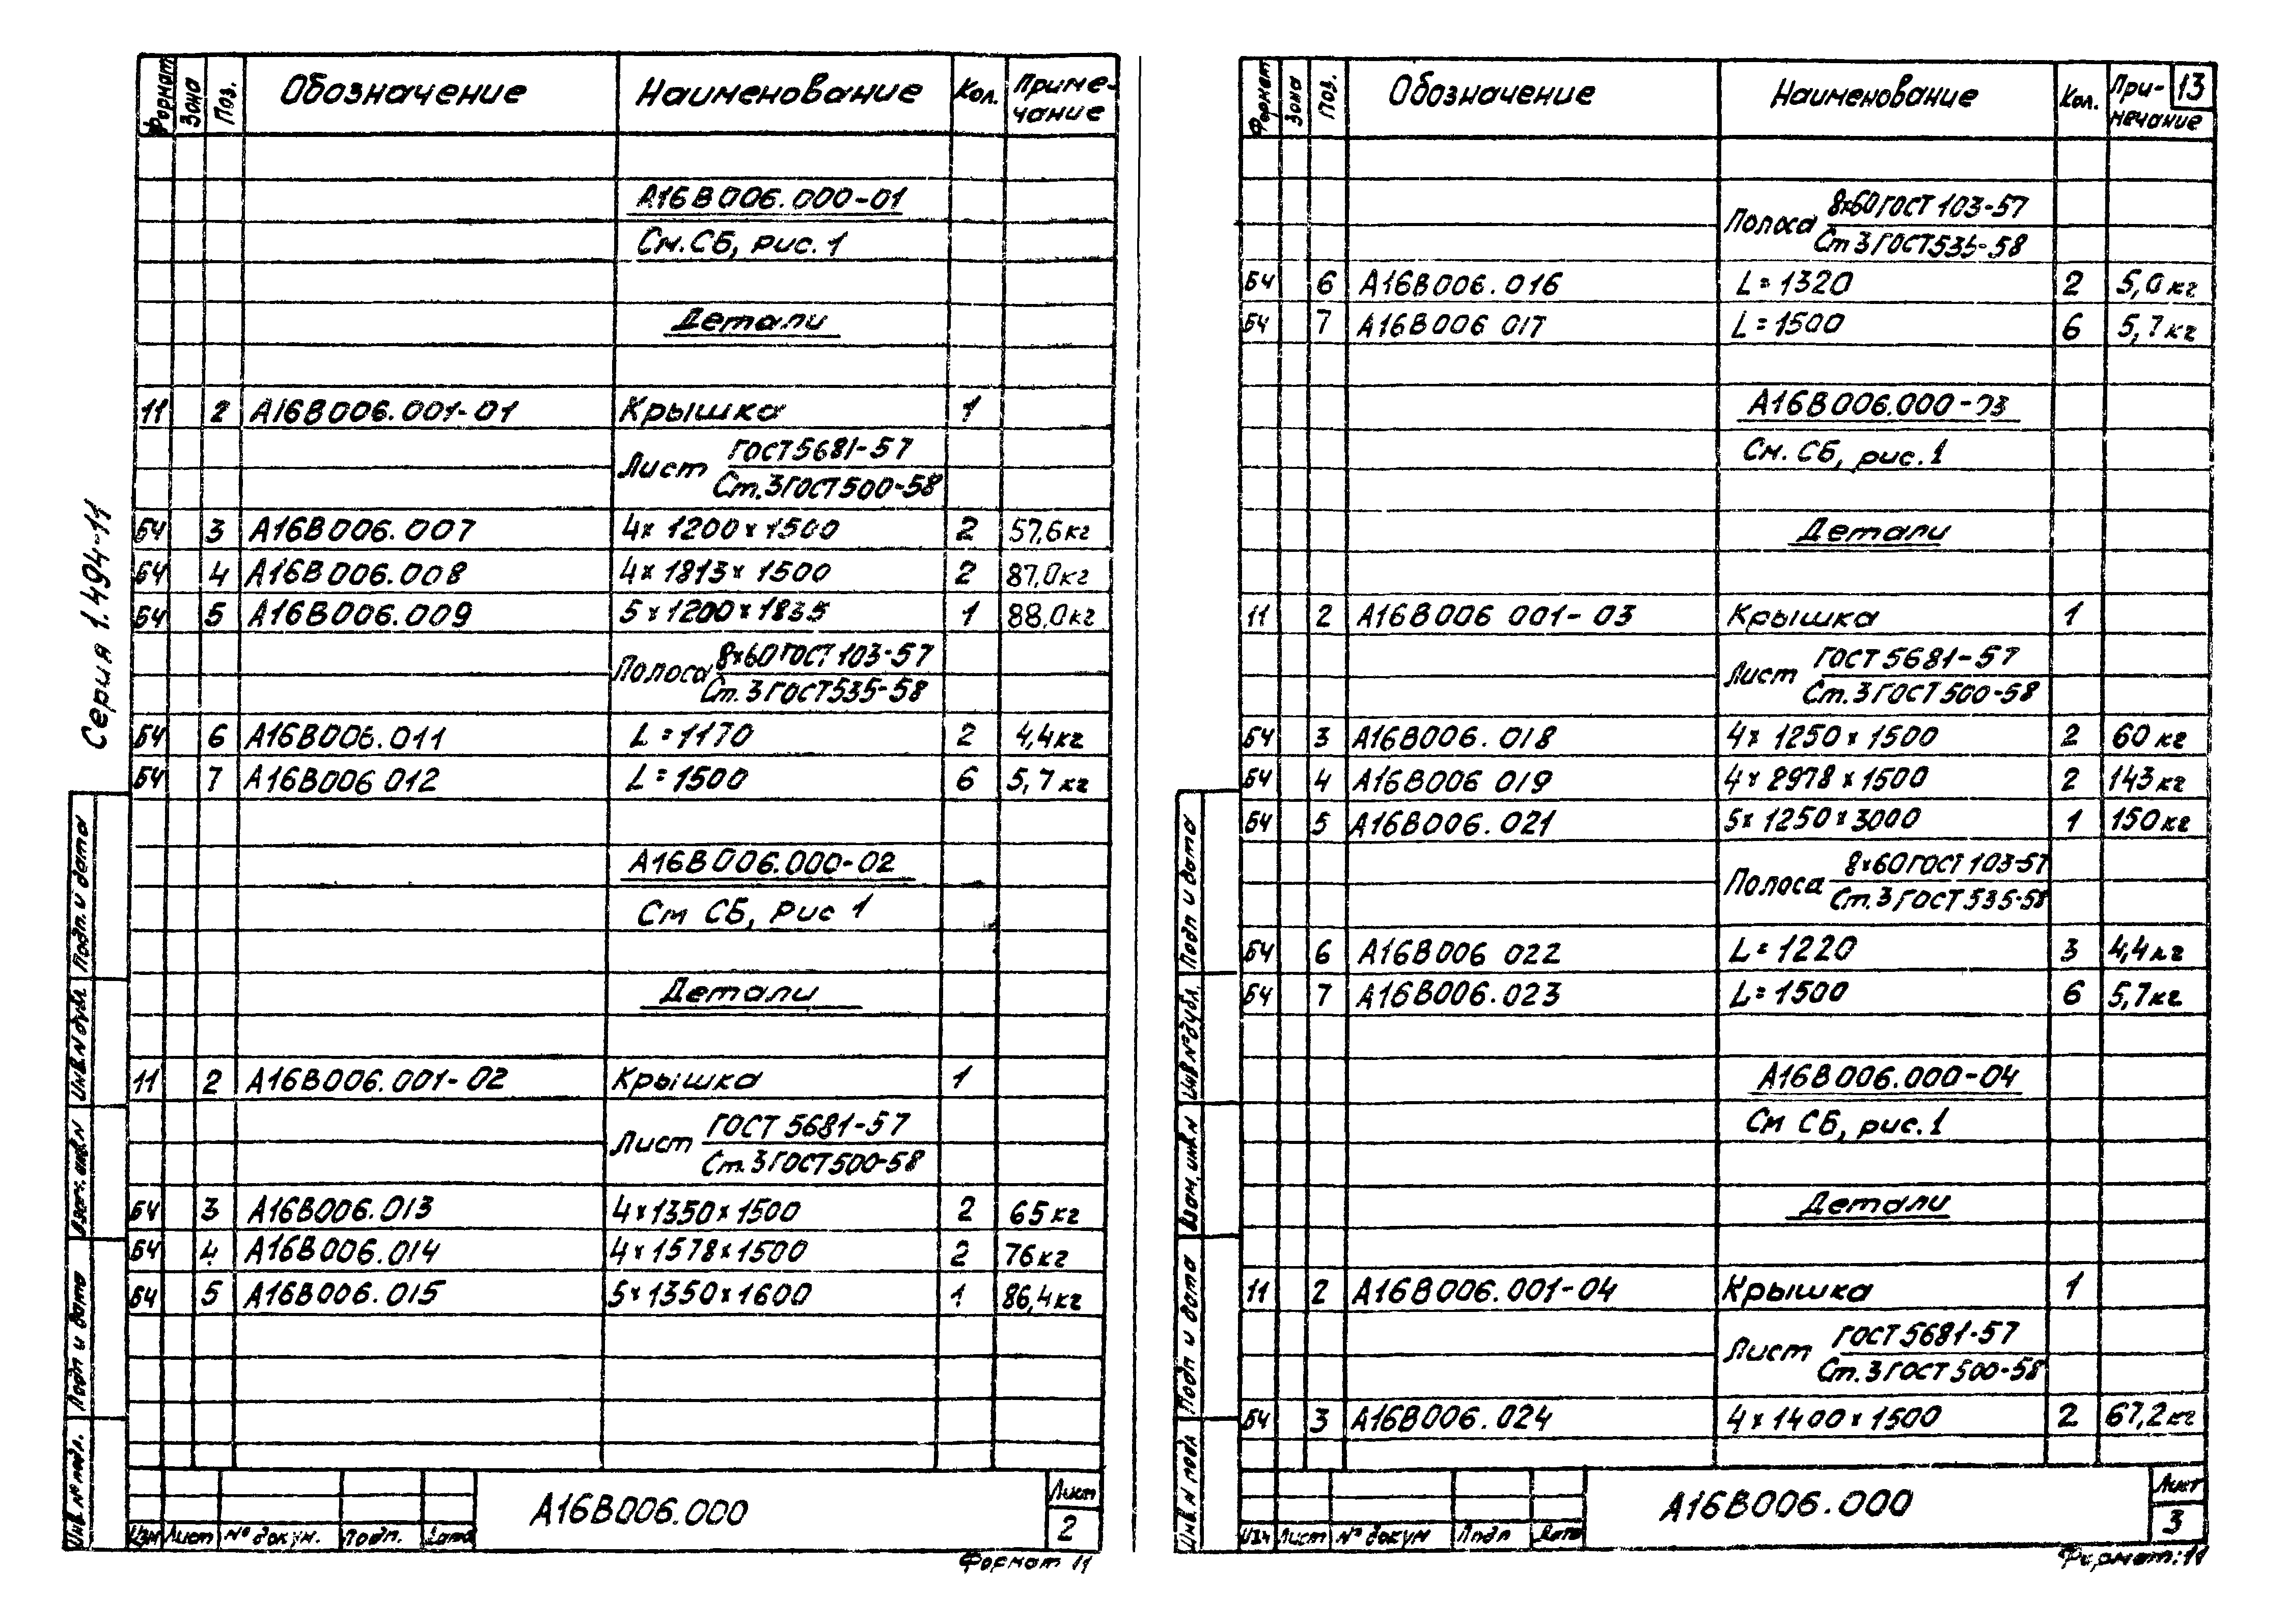 Формат Зона Поз. Обозначение Наименование Кол. Приме-
чание
А16В006.000-01
См. СБ, рис. 1
Детали
11 2 А16В006.001-01 Крышка 1
Лист ГОСТ 5681-57
Ст.3 ГОСТ 500-58
БЧ 3 А16В006.007 4х1200х1500 2 57,6кг
БЧ 4 А16В006.008 4х1813х1500 2 87,0кг
БЧ 5 А16В006.009 5х1200х1835 1 88,0кг
Полоса 8х60 ГОСТ 103-57
Ст.3 ГОСТ 535-58
БЧ 6 А16В006.011 L=1170 2 4,4кг
БЧ 7 А16В006 012 L=1500 6 5,7кг
А16В006.000-02
См СБ, рис 1
Детали
11 2 А16В006.001-02 Крышка 1
Лист ГОСТ 5681-57
Ст.3 ГОСТ 500-58
БЧ 3 А16В006.013 4х1350х1500 2 65кг
БЧ 4 А16В006.014 4х1578х1500 2 76кг
БЧ 5 А16В006.015 5х1350х1600 1 86,4кг
Серия 1.494-11
Подп. и дата
Инв.N дубл.
Взам. инв.N
Подп и дата
Инв. № подл.
Изм Лист № докум. Подп. Дата
А16В006.000
Лист
2
Формат 11
Формат Зона Поз. Обозначение Наименование Кол. При-
мечание
13
Полоса 8х60 ГОСТ 103-57
Ст 3 ГОСТ 535-58
БЧ 6 А16В006.016 L=1320 2 5,0кг
БЧ 7 А16В006 017 L=1500 6 5,7кг
А16В006.000-03
См. СБ, рис. 1
Детали
11 2 А16В006 001-03 Крышка 1
Лист ГОСТ 5681-57
Ст.3 ГОСТ 500-58
БЧ 3 А16В006.018 4х1250х1500 2 60кг
БЧ 4 А16В006 019 4х2978х1500 2 143кг
БЧ 5 А16В006.021 5х1250х3000 1 150кг
Полоса 8х60 ГОСТ 103-57
Ст.3 ГОСТ 535-58
БЧ 6 А16В006 022 L=1220 3 4,4кг
БЧ 7 А16В006.023 L=1500 6 5,7кг
А16В006.000-04
См СБ, рис. 1
Детали
11 2 А16В006.001-04 Крышка 1
Лист ГОСТ 5681-57
Ст.3 ГОСТ 500-58
БЧ 3 А16В006.024 4х1400х1500 2 67,2кг
Подп и дата
Инв №дубл.
Взам. инв.N
Подп и дата
Инв. N подл
Изм Лист № докум Подп Дата
А16В006.000
Лист
3
Формат: 11